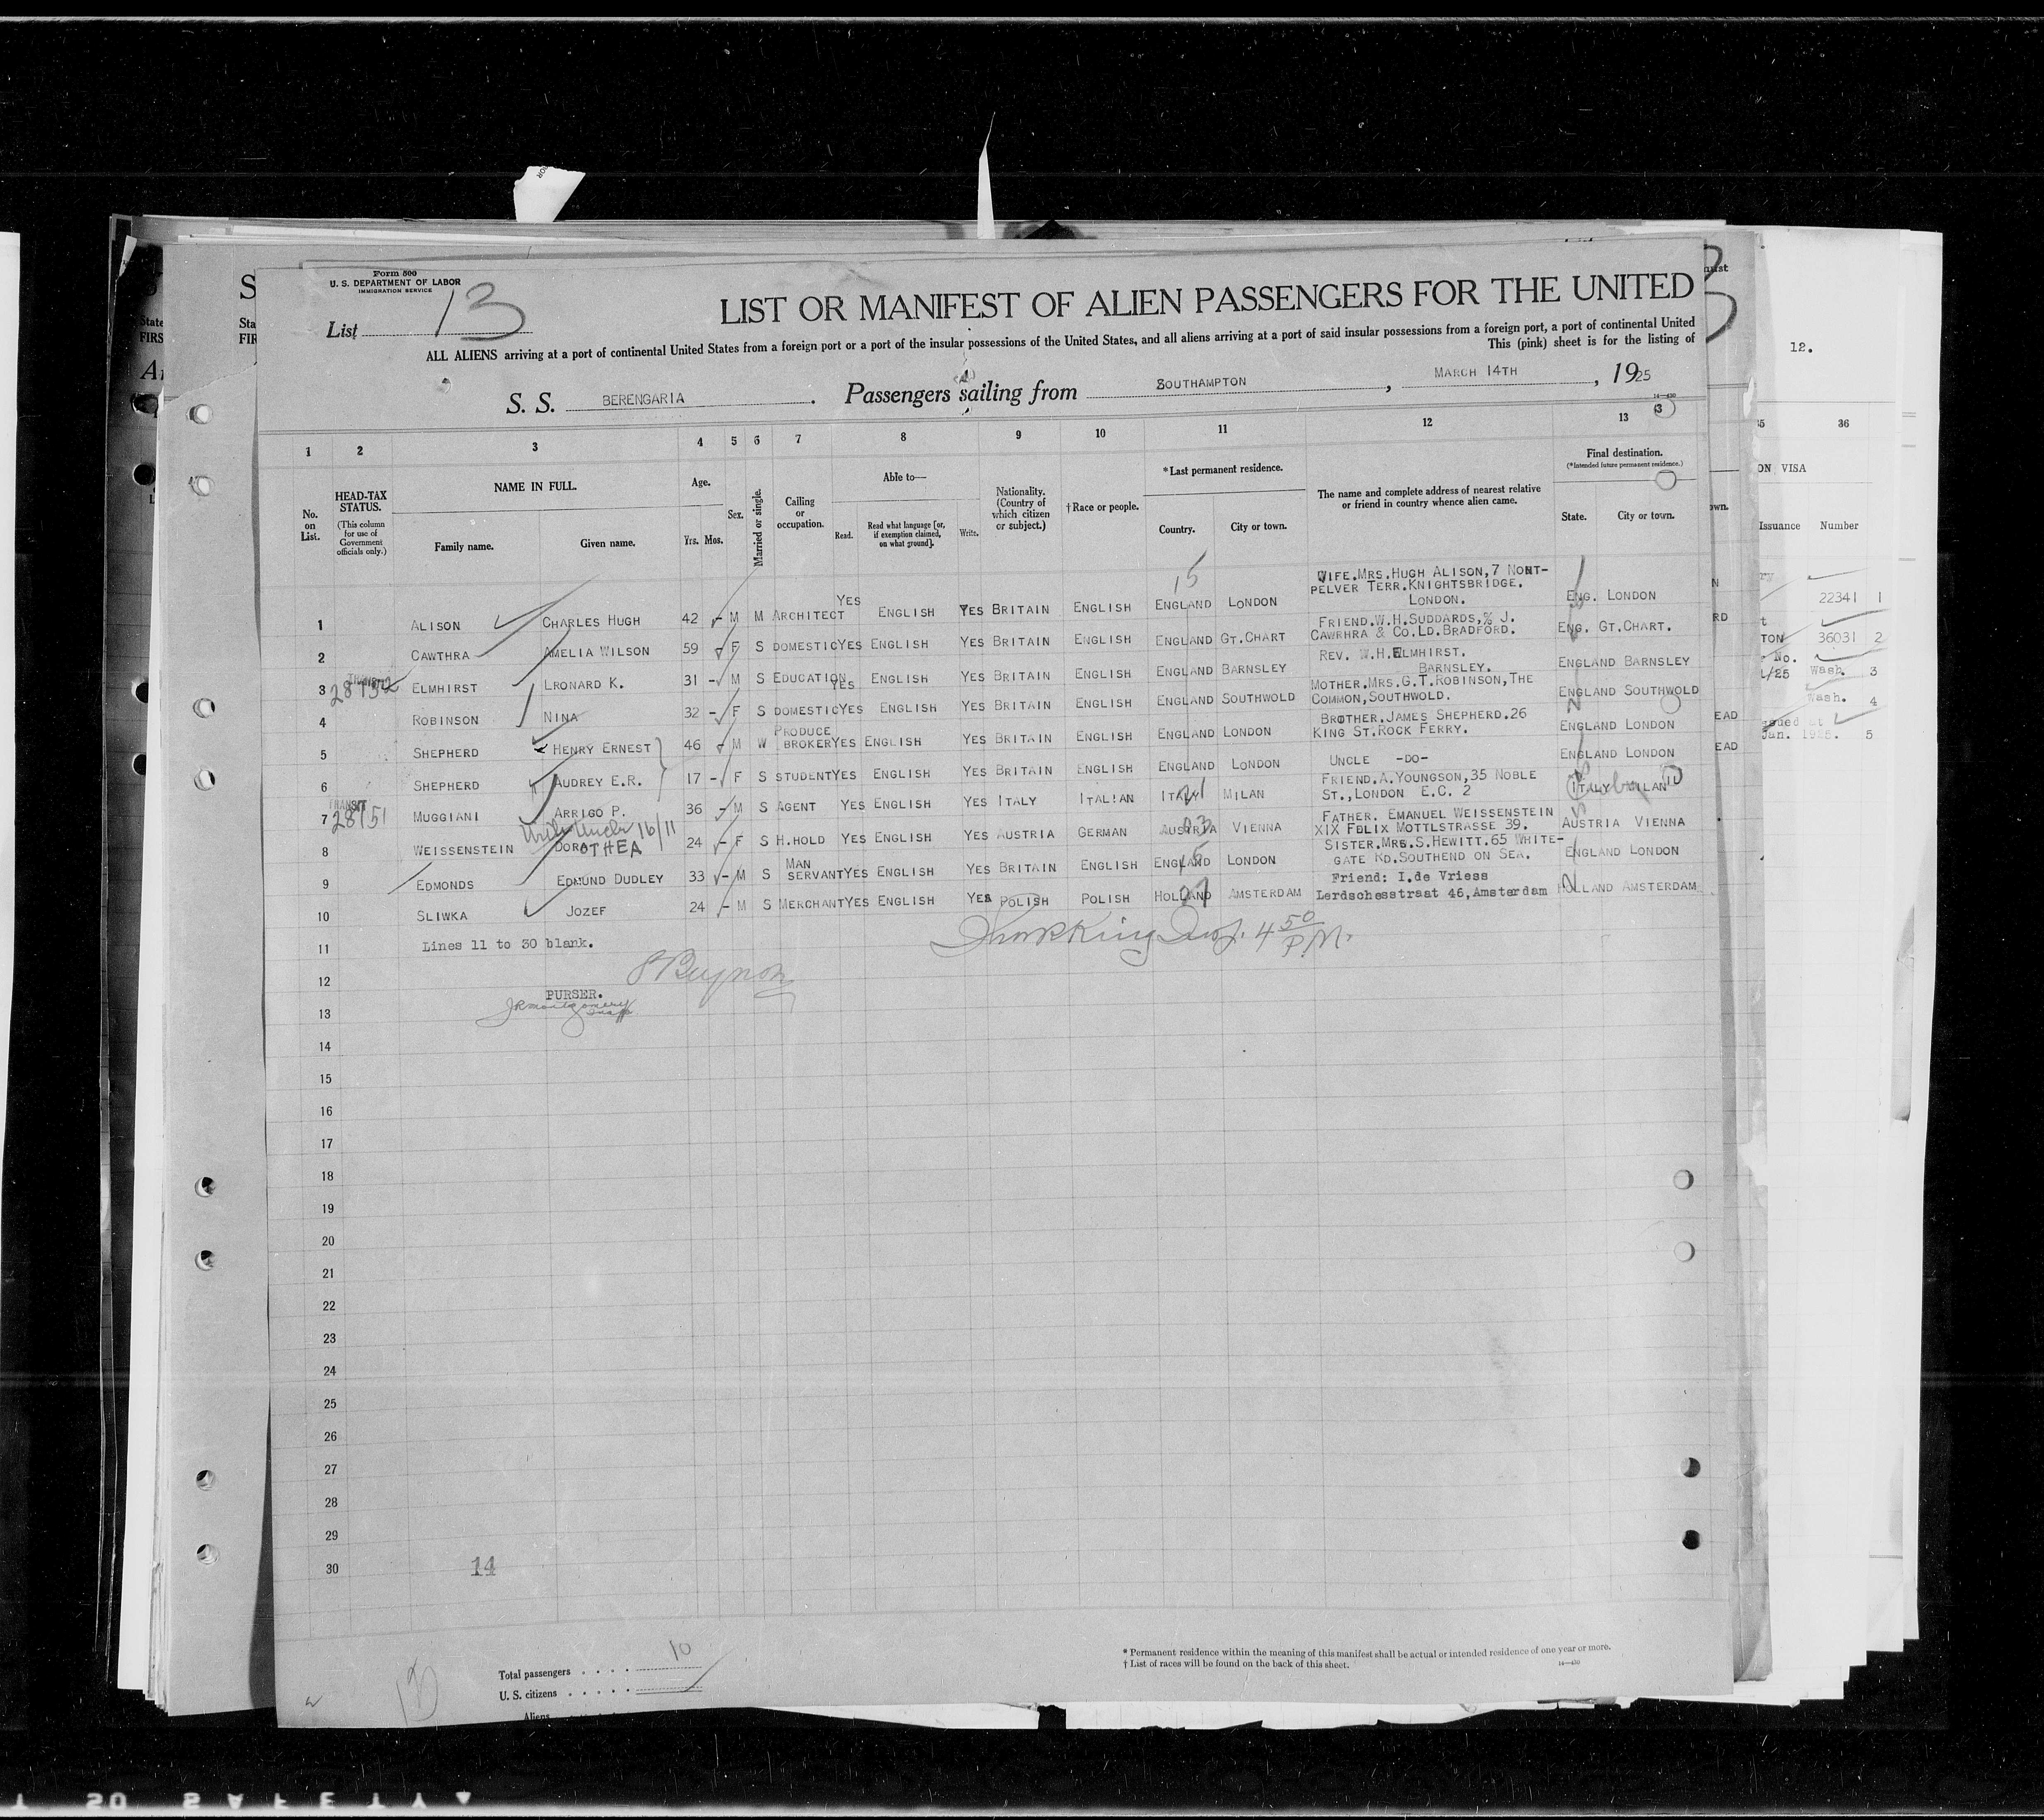 Form 500
U. S. DEPARTMENT OF LABOR
IMMIGRATION SERVICE
List 13
LIST OR MANIFEST OF ALIEN PASSENGERS FOR THE UNITED
ALL ALIENS arriving at a port of continental United States from a foreign port or a port of the insular possessions of the United States, and all aliens arriving at a port of said insular possessions from a foreign port, a port of continental United
This (pink) sheet is for the listing of
S. S. BERENGARIA. Passengers sailing from SOUTHAMPTON, MARCH 14TH, 1925
14—430
1 2 3 4 5 6 7 8 9 10 11 12 13
No. on List.
HEAD-TAX STATUS.
(This column for use of Government officials only.)
NAME IN FULL.
Family name. Given name.
Age.
Yrs. Mos.
Sex.
Married or single.
Calling or occupation.
Able to—
Read. Read what language [or, if exemption claimed, on what ground]. Write.
Nationality. (Country of which citizen or subject.)
† Race or people.
* Last permanent residence.
Country. City or town.
The name and complete address of nearest relative or friend in country whence alien came.
Final destination.
(*Intended future permanent residence.)
State. City or town.
1 ALISON CHARLES HUGH 42 - M M ARCHITECT YES ENGLISH YES BRITAIN ENGLISH ENGLAND LONDON WIFE.MRS.HUGH ALISON,7 MONT-PELVER TERR.KNIGHTSBRIDGE. LONDON. ENG. LONDON
2 CAWTHRA AMELIA WILSON 59 - F S DOMESTIC YES ENGLISH YES BRITAIN ENGLISH ENGLAND GT.CHART FRIEND.W.H.SUDDARDS,% J. CAWRHRA & CO.LD.BRADFORD. ENG. GT.CHART.
3 TRANSIT ELMHIRST LRONARD K. 31 - M S EDUCATION YES ENGLISH YES BRITAIN ENGLISH ENGLAND BARNSLEY REV. W.H.ELMHIRST. BARNSLEY. ENGLAND BARNSLEY
4 ROBINSON NINA 32 - F S DOMESTIC YES ENGLISH YES BRITAIN ENGLISH ENGLAND SOUTHWOLD MOTHER.MRS.G.T.ROBINSON,THE COMMON,SOUTHWOLD. ENGLAND SOUTHWOLD
5 SHEPHERD HENRY ERNEST 46 - M W PRODUCE BROKER YES ENGLISH YES BRITAIN ENGLISH ENGLAND LONDON BROTHER.JAMES SHEPHERD.26 KING ST.ROCK FERRY. ENGLAND LONDON
6 SHEPHERD AUDREY E.R. 17 - F S STUDENT YES ENGLISH YES BRITAIN ENGLISH ENGLAND LONDON UNCLE -DO- ENGLAND LONDON
7 TRANSIT 28151 MUGGIANI ARRIGO P. 36 - M S AGENT YES ENGLISH YES ITALY ITALIAN ITALY MILAN FRIEND.A.YOUNGSON,35 NOBLE ST.,LONDON E.C. 2 ITALY MILAN
8 WEISSENSTEIN DOROTHEA 24 - F S H.HOLD YES ENGLISH YES AUSTRIA GERMAN AUSTRIA VIENNA FATHER. EMANUEL WEISSENSTEIN XIX FELIX MOTTLSTRASSE 39. AUSTRIA VIENNA
9 EDMONDS EDMUND DUDLEY 33 - M S MAN SERVANT YES ENGLISH YES BRITAIN ENGLISH ENGLAND LONDON SISTER.MRS.S.HEWITT.65 WHITE-GATE RD.SOUTHEND ON SEA. ENGLAND LONDON
10 SLIWKA JOZEF 24 - M S MERCHANT YES ENGLISH YES POLISH POLISH HOLLAND AMSTERDAM Friend: I.de Vriess Lerdschesstraat 46,Amsterdam HOLLAND AMSTERDAM
11 Lines 11 to 30 blank.
4 50 P.M.
12
PURSER.
JR Montgomery
13
14
15
16
17
18
19
20
21
22
23
24
25
26
27
28
29
30
14
Total passengers . . . . 10
U. S. citizens . . . . .
Aliens
* Permanent residence within the meaning of this manifest shall be actual or intended residence of one year or more.
† List of races will be found on the back of this sheet.
14—430
12.
36
ON VISA
Issuance Number
22341 1
TON 36031 2
No.
/25 Wash. 3
Wash. 4
Jan. 1925. 5
SAFETY